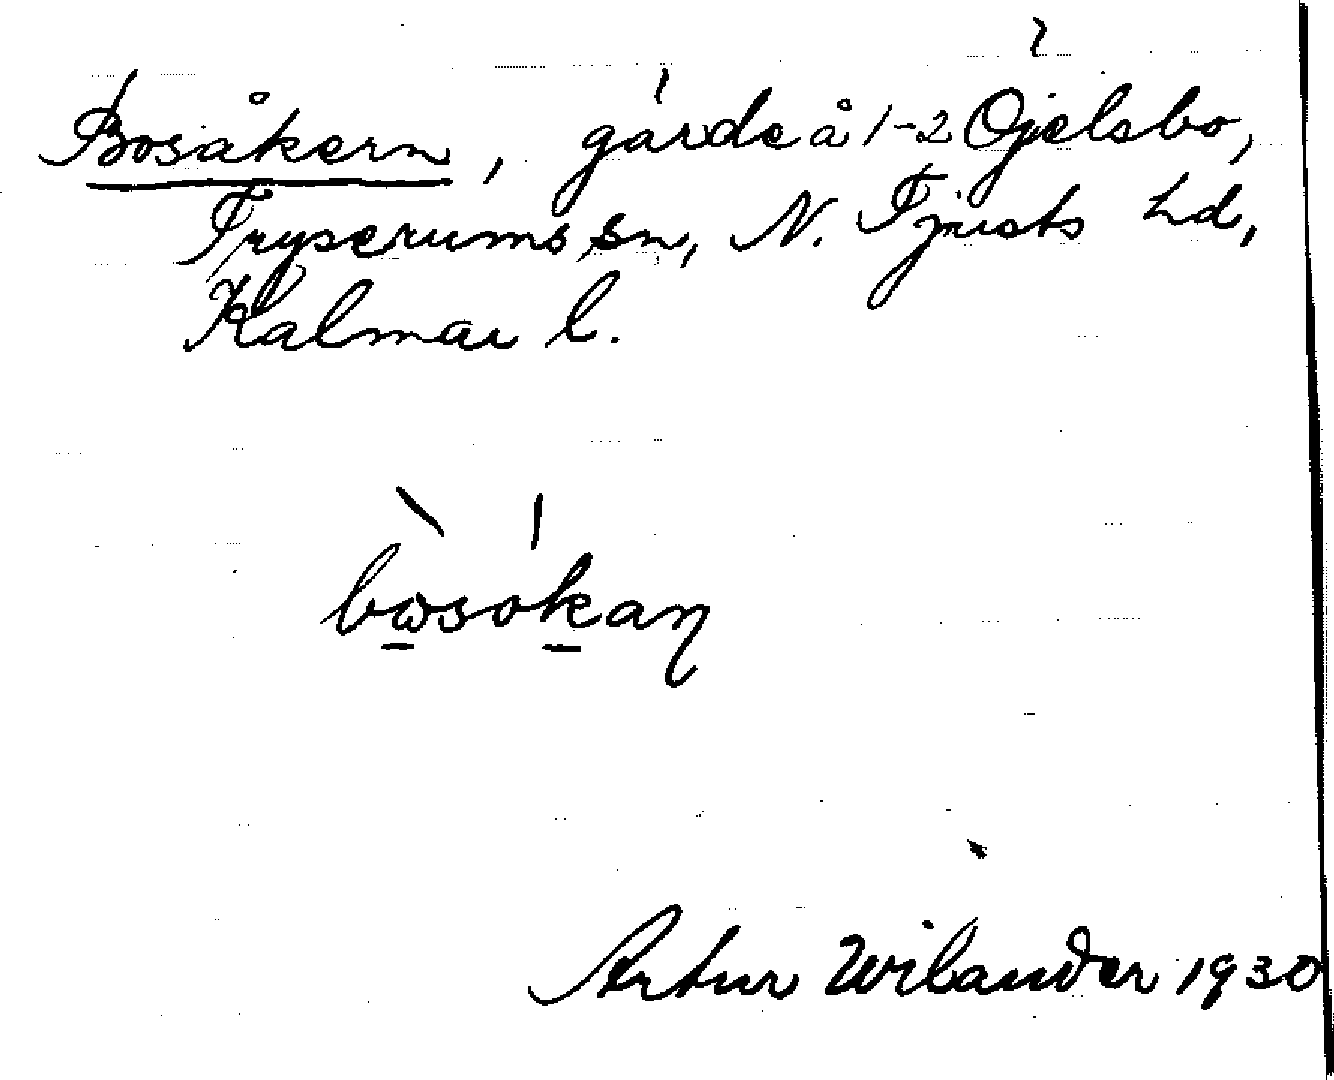 Bosåkern, gärde å 1-2 Öjelsbo,
Tryserums sn, N. Tjusts hd,
Kalmar l.
bωsokaɳ
Artur Wilander 1930